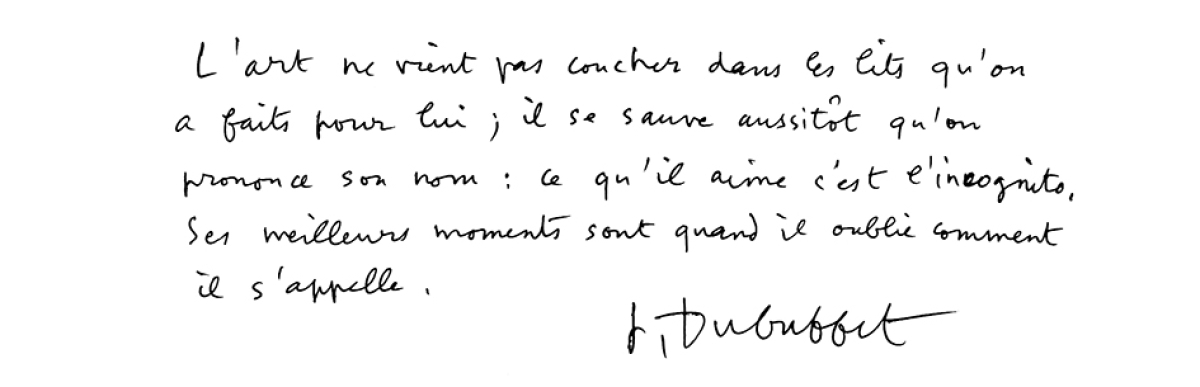 L'art ne vient pas coucher dans les lits qu'on
a faits pour lui ; il se sauve aussitôt qu'on
prononce son nom : ce qu'il aime c'est l'incognito.
Ses meilleurs moments sont quand il oublie comment
il s'appelle.
J. Dubuffet